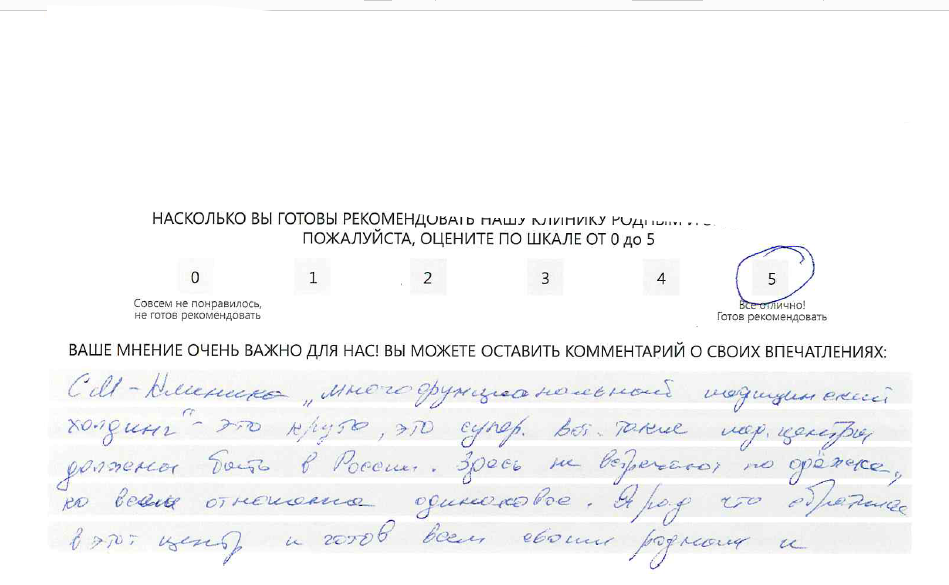 НАСКОЛЬКО ВЫ ГОТОВЫ РЕКОМЕНДОВАТЬ НАШУ КЛИНИКУ РОДНЫМ И
ПОЖАЛУЙСТА, ОЦЕНИТЕ ПО ШКАЛЕ ОТ 0 до 5
0 1 2 3 4 5
Совсем не понравилось, Все отлично!
не готов рекомендовать Готов рекомендовать
ВАШЕ МНЕНИЕ ОЧЕНЬ ВАЖНО ДЛЯ НАС! ВЫ МОЖЕТЕ ОСТАВИТЬ КОММЕНТАРИЙ О СВОИХ ВПЕЧАТЛЕНИЯХ:
СМ-Клиника „многофункциональный медицинский
холдинг" - это круто, это супер. Вот такие мед. центры
должны быть в России. Здесь не встречают по одёжке,
ко всем отношение одинаковое. Я рад что обратился
в этот центр и готов всем своим родным и